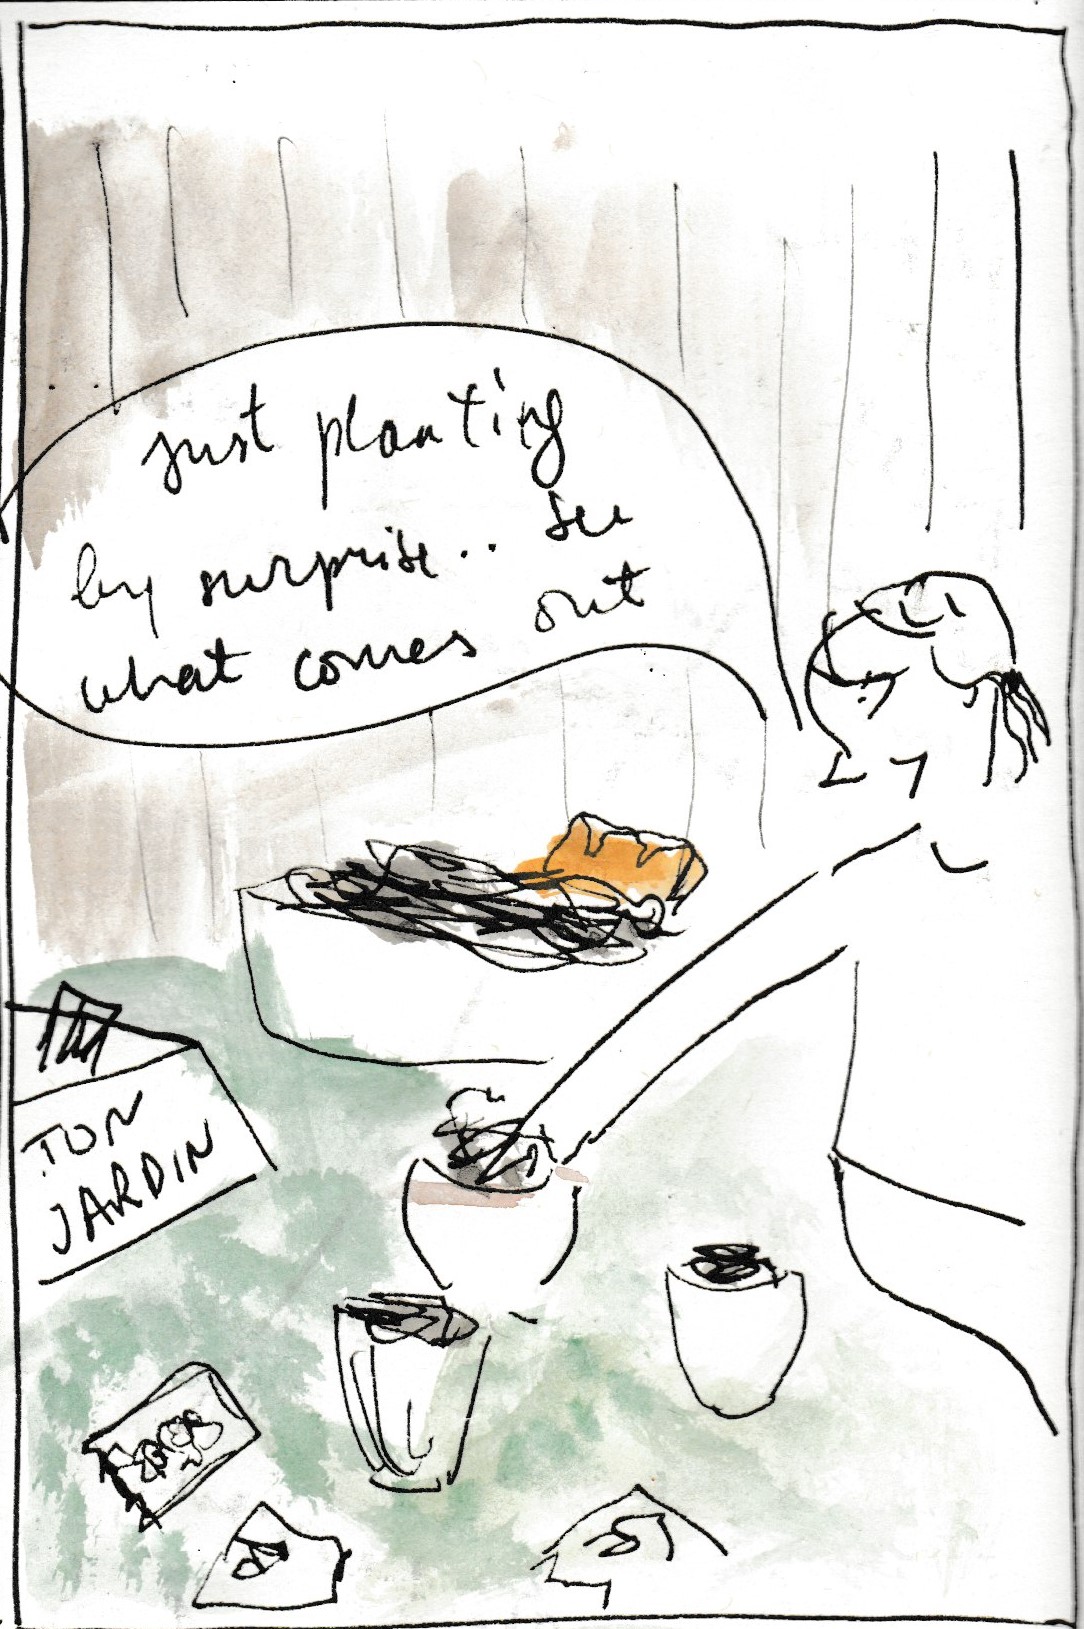 just planting
by surprise.. see
what comes out
TON
JARDIN